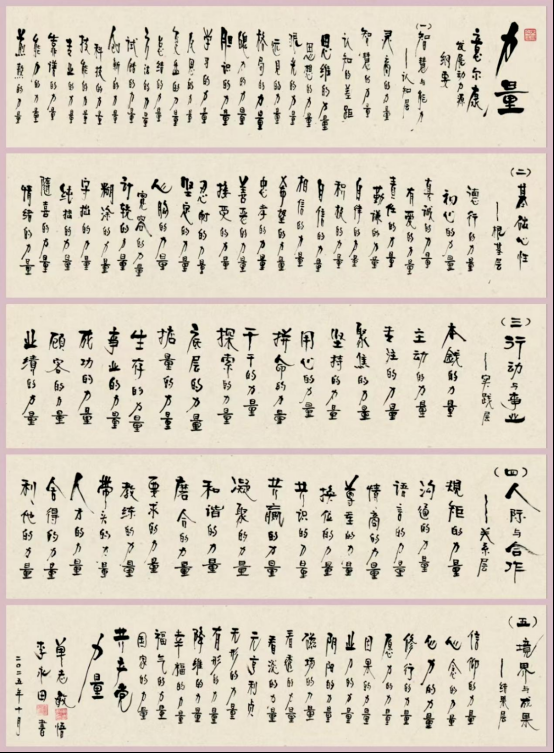 力量
立意尔康
发展动力源
纲要
(一)智慧与能力
——认知层
灵商的力量
智慧的力量
认知的差距
思维的力量
思想的力量
眼光的力量
远见的力量
格局的力量
胆识的力量
学习的力量
反思的力量
总结的力量
方法的力量
试错的力量
创新的力量
科技的力量
技能的力量
专业的力量
靠谱的力量
能力的力量
(二)基础心性
——根基层
德行的力量
初心的力量
真诚的力量
有爱的力量
责任的力量
勤谦的力量
自律的力量
积极的力量
自信的力量
相信的力量
希望的力量
忠孝的力量
善恶的力量
接受的力量
忍耐的力量
坚定的力量
人胸的力量
宽容的力量
计较的力量
糊涂的力量
字拙的力量
纯拙的力量
随喜的力量
情绪的力量
(三)行动与事业
——实践层
本钱的力量
主动的力量
专注的力量
聚焦的力量
坚持的力量
用心的力量
拼命的力量
干干的力量
探索的力量
底层的力量
掂量的力量
生存的力量
事业的力量
成功的力量
顾客的力量
业绩的力量
(四)人际与合作
——关系层
规矩的力量
沟通的力量
语言的力量
情商的力量
尊重的力量
换位的力量
共识的力量
共赢的力量
凝聚的力量
和谐的力量
磨合的力量
要求的力量
教练的力量
带头的力量
人才的力量
舍得的力量
利他的力量
(五)境界与成果
——结果层
信仰的力量
心念的力量
心力的力量
修行的力量
愿力的力量
因果的力量
业力的力量
阴阳的力量
磁场的力量
看透的力量
看淡的力量
元亨利贞
无形的力量
有形的力量
降维的力量
幸福的力量
福气的力量
国家的力量
共立免
力量
单志毅 悟
李永田 书
二〇二五年十月